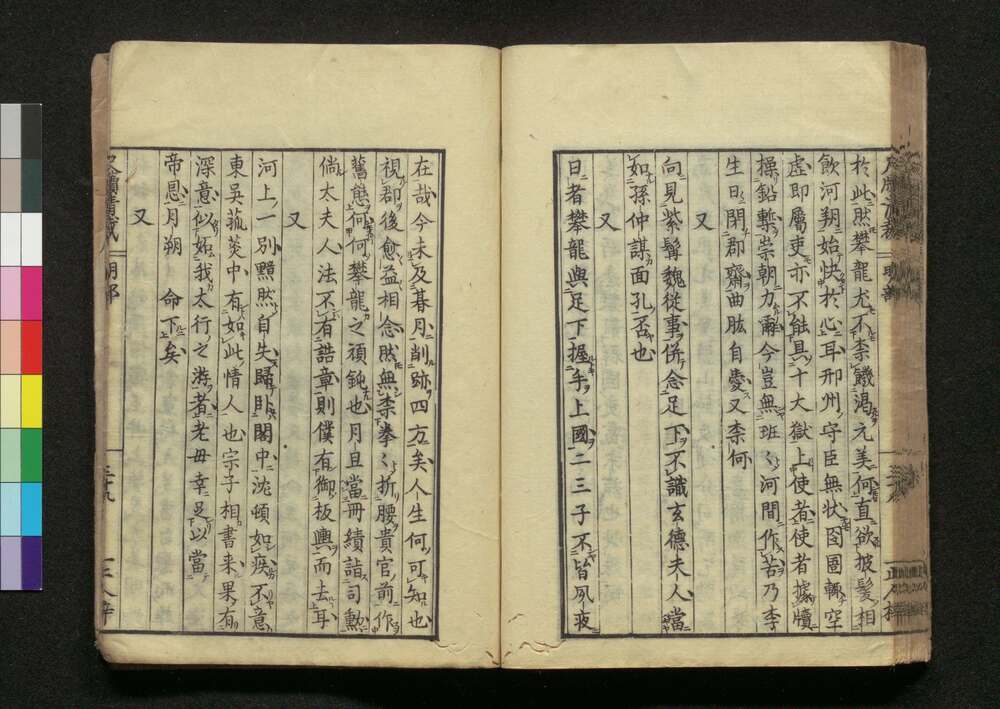 於此然攀龍尤不柰饑渴元美何直欲披髪相
飲河朔始快於心耳邢州守臣無状囹圄輙空
虚即屬吏亦不能具十大獄上使者使者據牘
操鉛槧崇朝力爾今豈無班〻河間作苦乃李
生日閉郡齋曲肱自愛又柰何
又
向見紫髯魏從事併念足下不識玄德夫人當
如孫仲謀面孔否也
又
日者攀龍與足下握手上國二三子不皆夙夜
在哉今未及朞月削跡四方矣人生何可知也
視郡後愈益相念然無柰拳〻折腰貴官前作
舊態何何攀龍之頑鈍也月且當冊績詣司勲
倘太夫人法不有誥章則僕有御板輿而去耳
又
河上一別黯然自失歸卧閤中沈頓如疾不意
東吳菰蘆中有如此情人也宗子相書来果有
深意似妬我太行之游者老毋幸足以當
帝恩月朔　命下矣
又